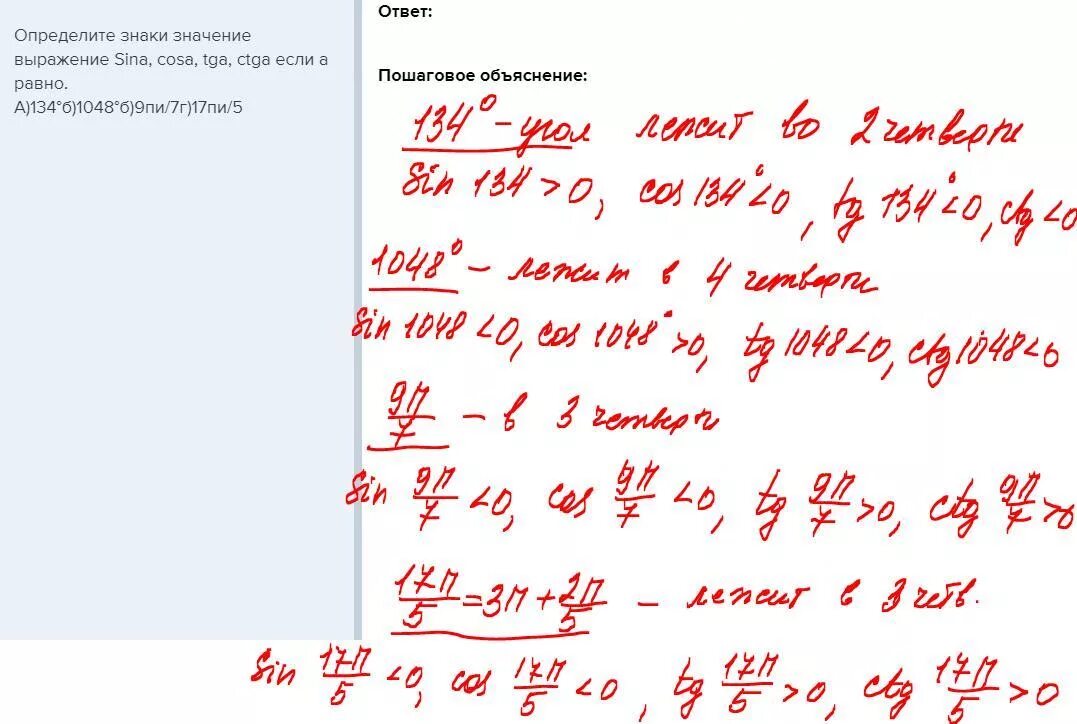 Определите знаки значение
выражение Sina, cosa, tga, ctga если а
равно.
А)134°б)1048°б)9пи/7г)17пи/5
Ответ:
Пошаговое объяснение:
134° – угол лежит во 2 четверти
Sin 134 > 0, cos 134° < 0, tg 134° < 0, ctg < 0
1048° – лежит в 4 четверти
Sin 1048 < 0, cos 1048° > 0, tg 1048 < 0, ctg 1048 < 0
9π/7 – в 3 четверти
Sin 9π/7 < 0, cos 9π/7 < 0, tg 9π/7 > 0, ctg 9π/7 > 0
17π/5 = 3π + 2π/5 – лежит в 3 четв.
Sin 17π/5 < 0, cos 17π/5 < 0, tg 17π/5 > 0, ctg 17π/5 > 0